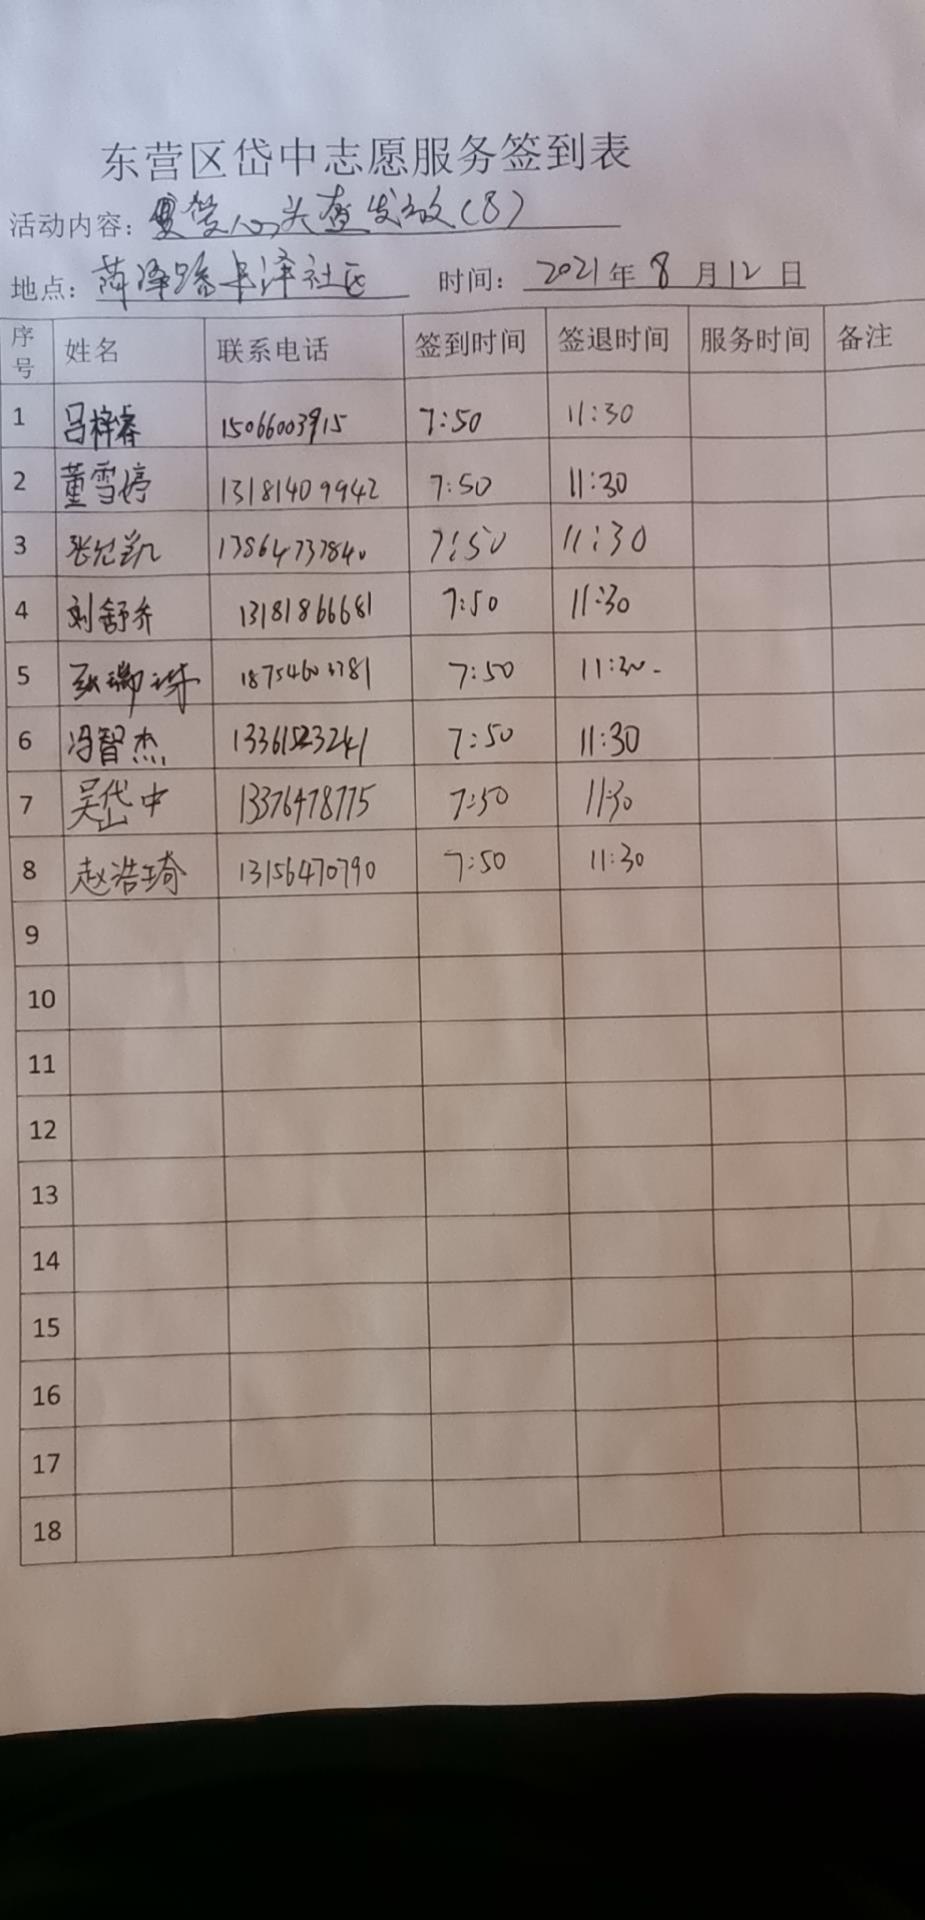 东营区岱中志愿服务签到表
活动内容: 头 发放(8)
地点: 菏泽路 泽社区 时间: 2021年8月12日
序号 姓名 联系电话 签到时间 签退时间 服务时间 备注
1 吕梓睿 15066003915 7:50 11:30
2 董雪婷 13181409942 7:50 11:30
3 7:50 11:30
4 刘舒乔 13181866681 7:50 11:30
5 7:50 11:30
6 冯智杰 7:50 11:30
7 吴岱中 13376478775 7:50 11:30
8 赵浩琦 13156470790 7:50 11:30
9
10
11
12
13
14
15
16
17
18